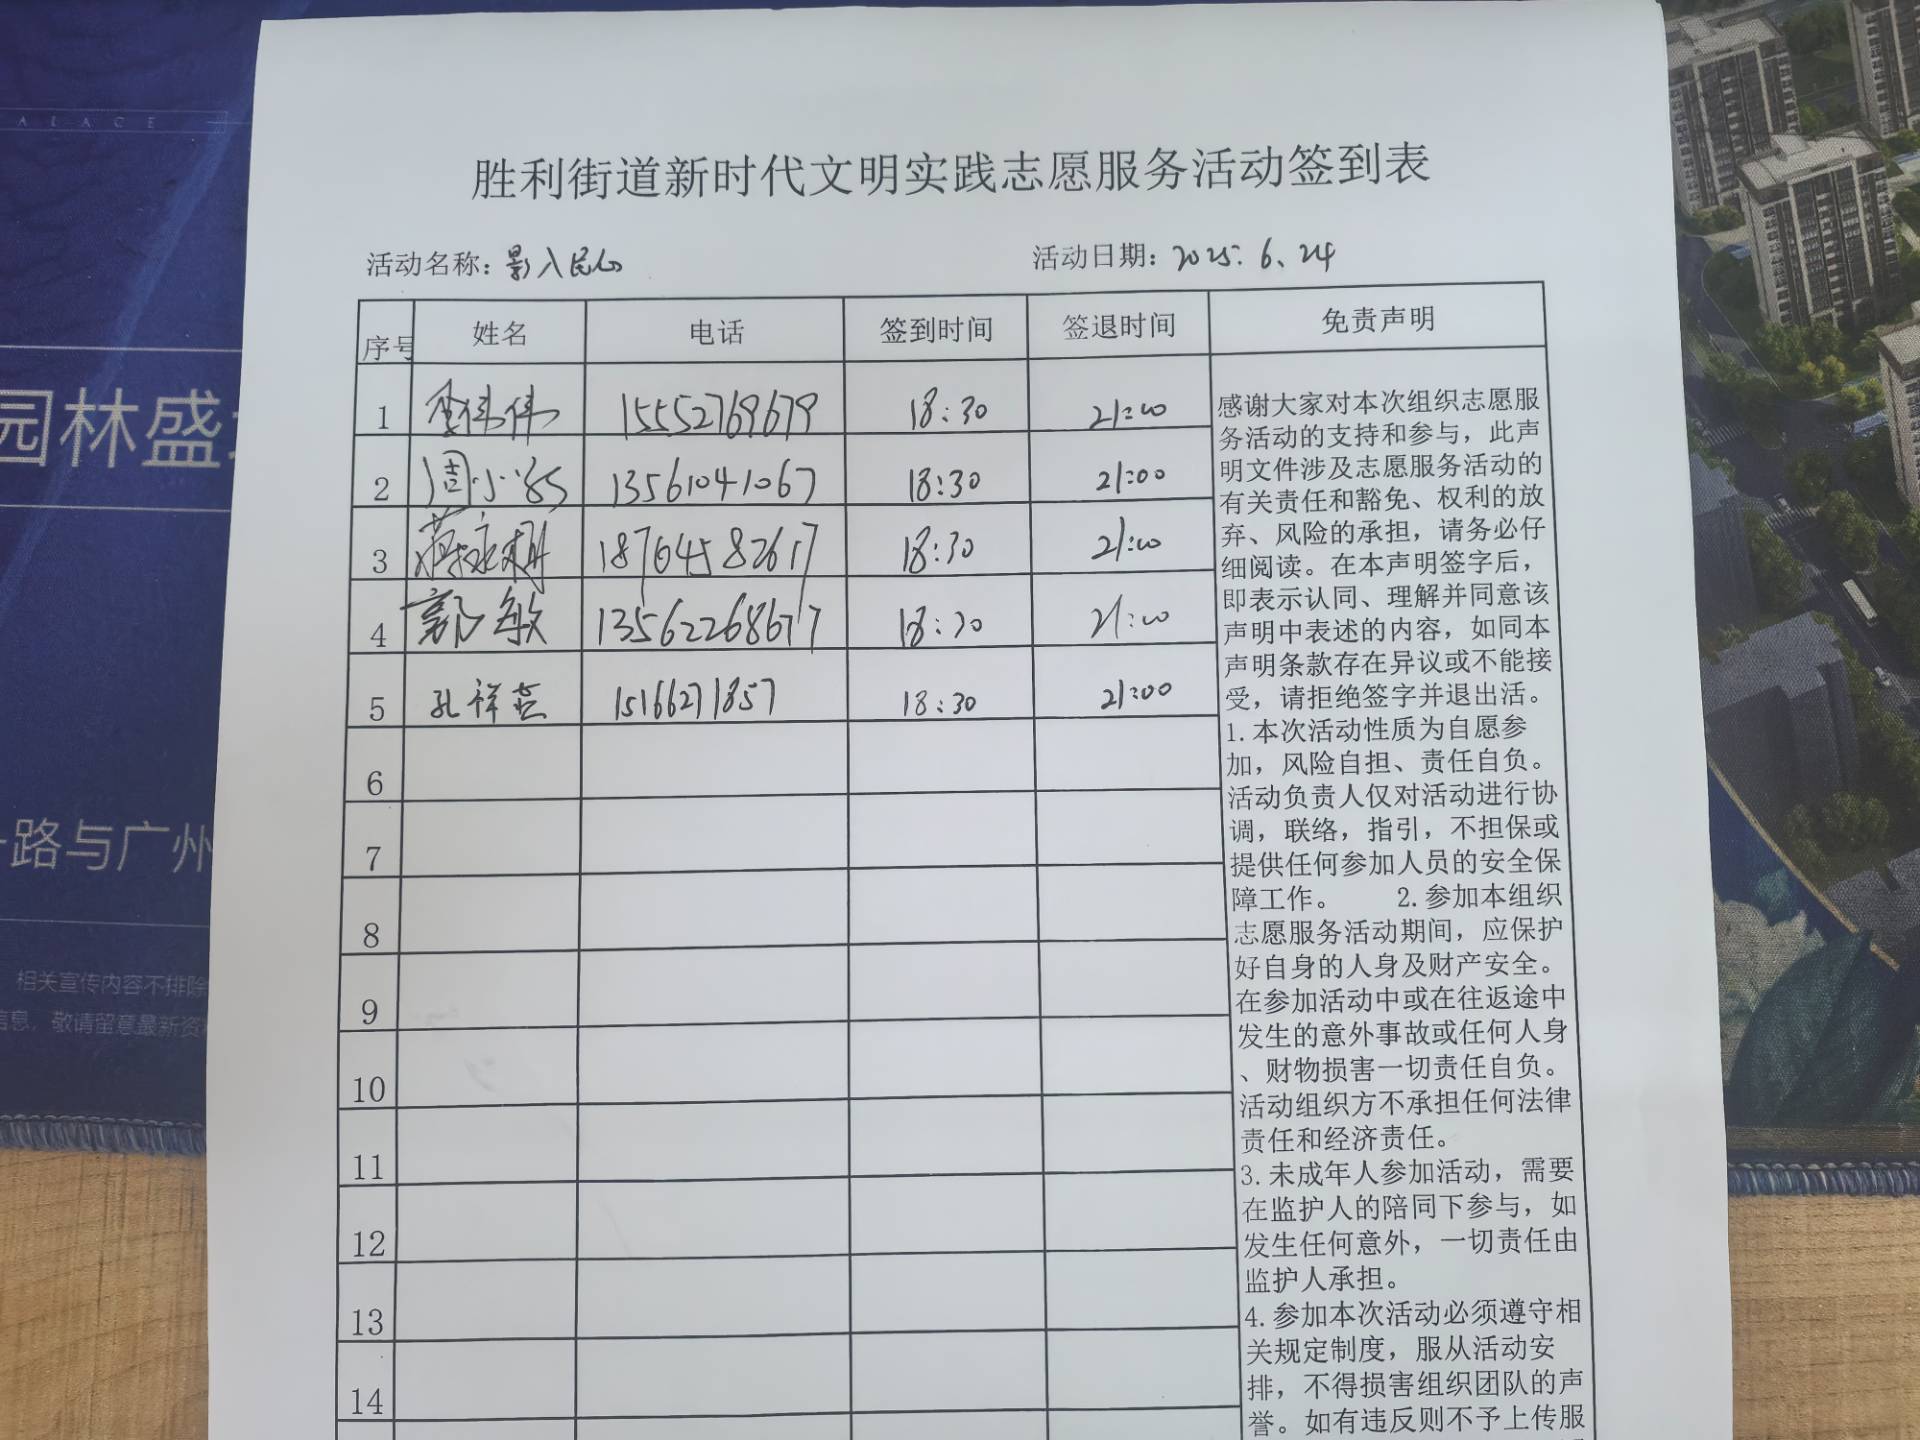 ALACE
园林盛
路与广州
相关宣传内容不排除
信息，敬请留意最新资
胜利街道新时代文明实践志愿服务活动签到表
活动名称：影入民心 活动日期：2025.6.24
序号 姓名 电话 签到时间 签退时间 免责声明
1 伟伟 15552769679 18:30 21:00
2 周小 13561041067 18:30 21:00
3 蒋 18764582617 18:30 21:00
4 郭敏 13562268677 18:30 21:00
5 孔祥燕 15166271857 18:30 21:00
6
7
8
9
10
11
12
13
14
感谢大家对本次组织志愿服
务活动的支持和参与，此声
明文件涉及志愿服务活动的
有关责任和豁免、权利的放
弃、风险的承担，请务必仔
细阅读。在本声明签字后，
即表示认同、理解并同意该
声明中表述的内容，如同本
声明条款存在异议或不能接
受，请拒绝签字并退出活。
1.本次活动性质为自愿参
加，风险自担、责任自负。
活动负责人仅对活动进行协
调，联络，指引，不担保或
提供任何参加人员的安全保
障工作。 2.参加本组织
志愿服务活动期间，应保护
好自身的人身及财产安全。
在参加活动中或在往返途中
发生的意外事故或任何人身
、财物损害一切责任自负。
活动组织方不承担任何法律
责任和经济责任。
3.未成年人参加活动，需要
在监护人的陪同下参与，如
发生任何意外，一切责任由
监护人承担。
4.参加本次活动必须遵守相
关规定制度，服从活动安
排，不得损害组织团队的声
誉。如有违反则不予上传服